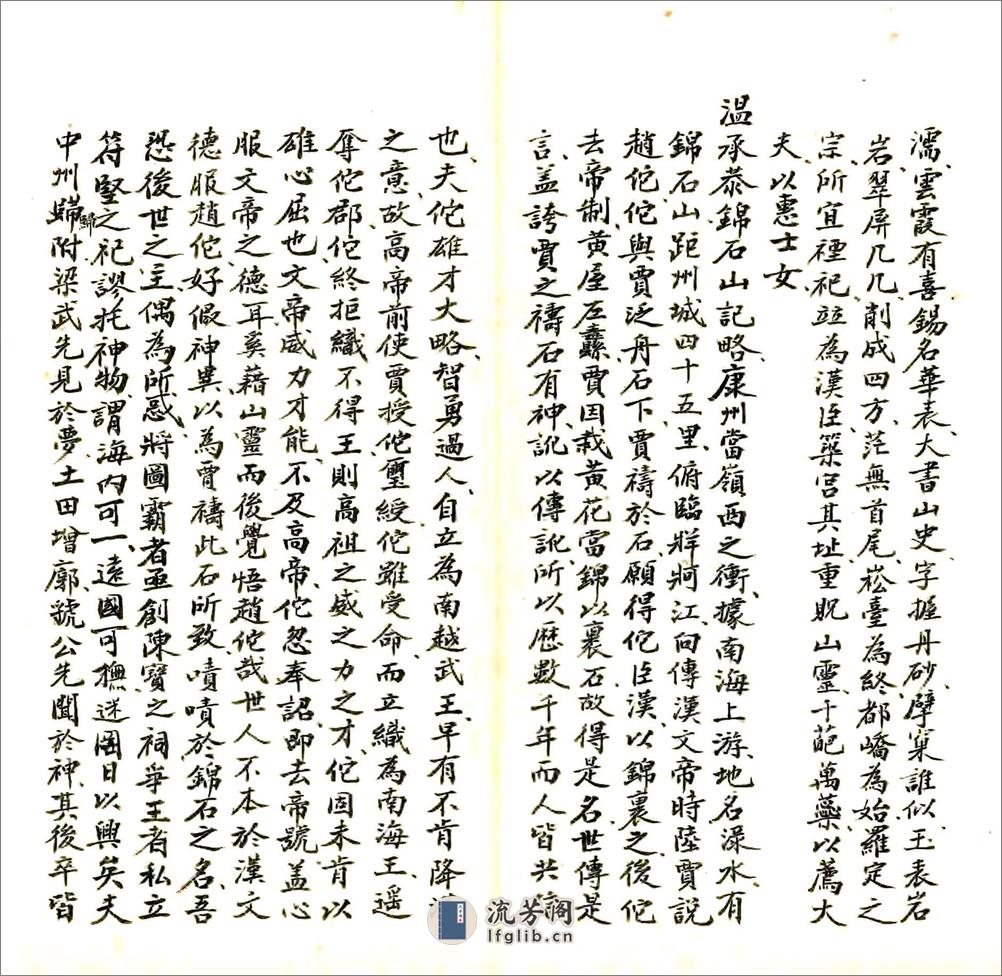 濡雲霞有喜錫名華表大書山史字握丹砂擘窠誰似玉表岩
岩翠屏几几削成四方茫無首尾崧臺為終都嶠為始羅定之
宗所宜禋祀竝為漢臣築宮其址重貺山靈千葩萬藥以薦大
夫以惠士女
温承恭錦石山記略康州當嶺西之衝據南海上游地名淥水有
錦石山距州城四十五里俯臨牂牁江向傳漢文帝時陸賈說
趙佗佗與賈泛舟石下賈禱於石願得佗臣漢以錦裹之後佗
去帝制黃屋左纛賈因栽黃花當錦以裹石故得是名世傳是
言盖誇賈之禱石有神訛以傳訛所以歷數千年而人皆共
也夫佗雄才大略智勇過人自立為南越武王早有不肯降
之意故高帝前使賈授佗璽綬佗雖受命而立織為南海王遥
奪佗郡佗終拒織不得王則高祖之威之力之才佗固未肯以
雄心屈也文帝威力才能不及高帝佗忽奉詔即去帝號盖心
服文帝之德耳奚藉山靈而後覺悟趙佗哉世人不本於漢文
德服趙佗好假神異以為賈禱此石所致嘖嘖於錦石之名吾
恐後世之主偶為所惑將圖霸者亟創陳寶之祠爭王者私立
符堅之祀謬托神物謂海内可一遠國可撫迷圖日以興矣夫
中州歸歸附梁武先見於夢土田增廓虢公先聞於神其後卒皆
流芳閣
lfglib.cn